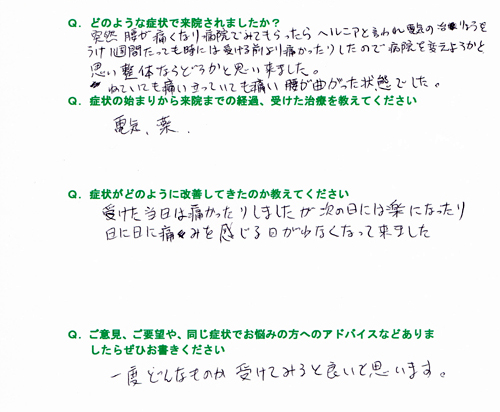 Q. どのような症状で来院されましたか？
突然 腰が痛くなり病院でみてもらったら ヘルニアと言われ電気の治りょうを
うけ1週間たっても時には受ける前より痛かったりしたので病院を変えようかと
思い整体ならどうかと思い来ました。
ねていても痛い立っていても痛い 腰が曲がった状態でした。
Q. 症状の始まりから来院までの経過、受けた治療を教えてください
電気、薬、
Q. 症状がどのように改善してきたのか教えてください
受けた当日は痛かったりしましたが 次の日には楽になったり
日に日に痛みを感じる日が少なくなって来ました
Q. ご意見、ご要望や、同じ症状でお悩みの方へのアドバイスなどありま
したらぜひお書きください
一度どんなものか 受けてみると良いと思います。